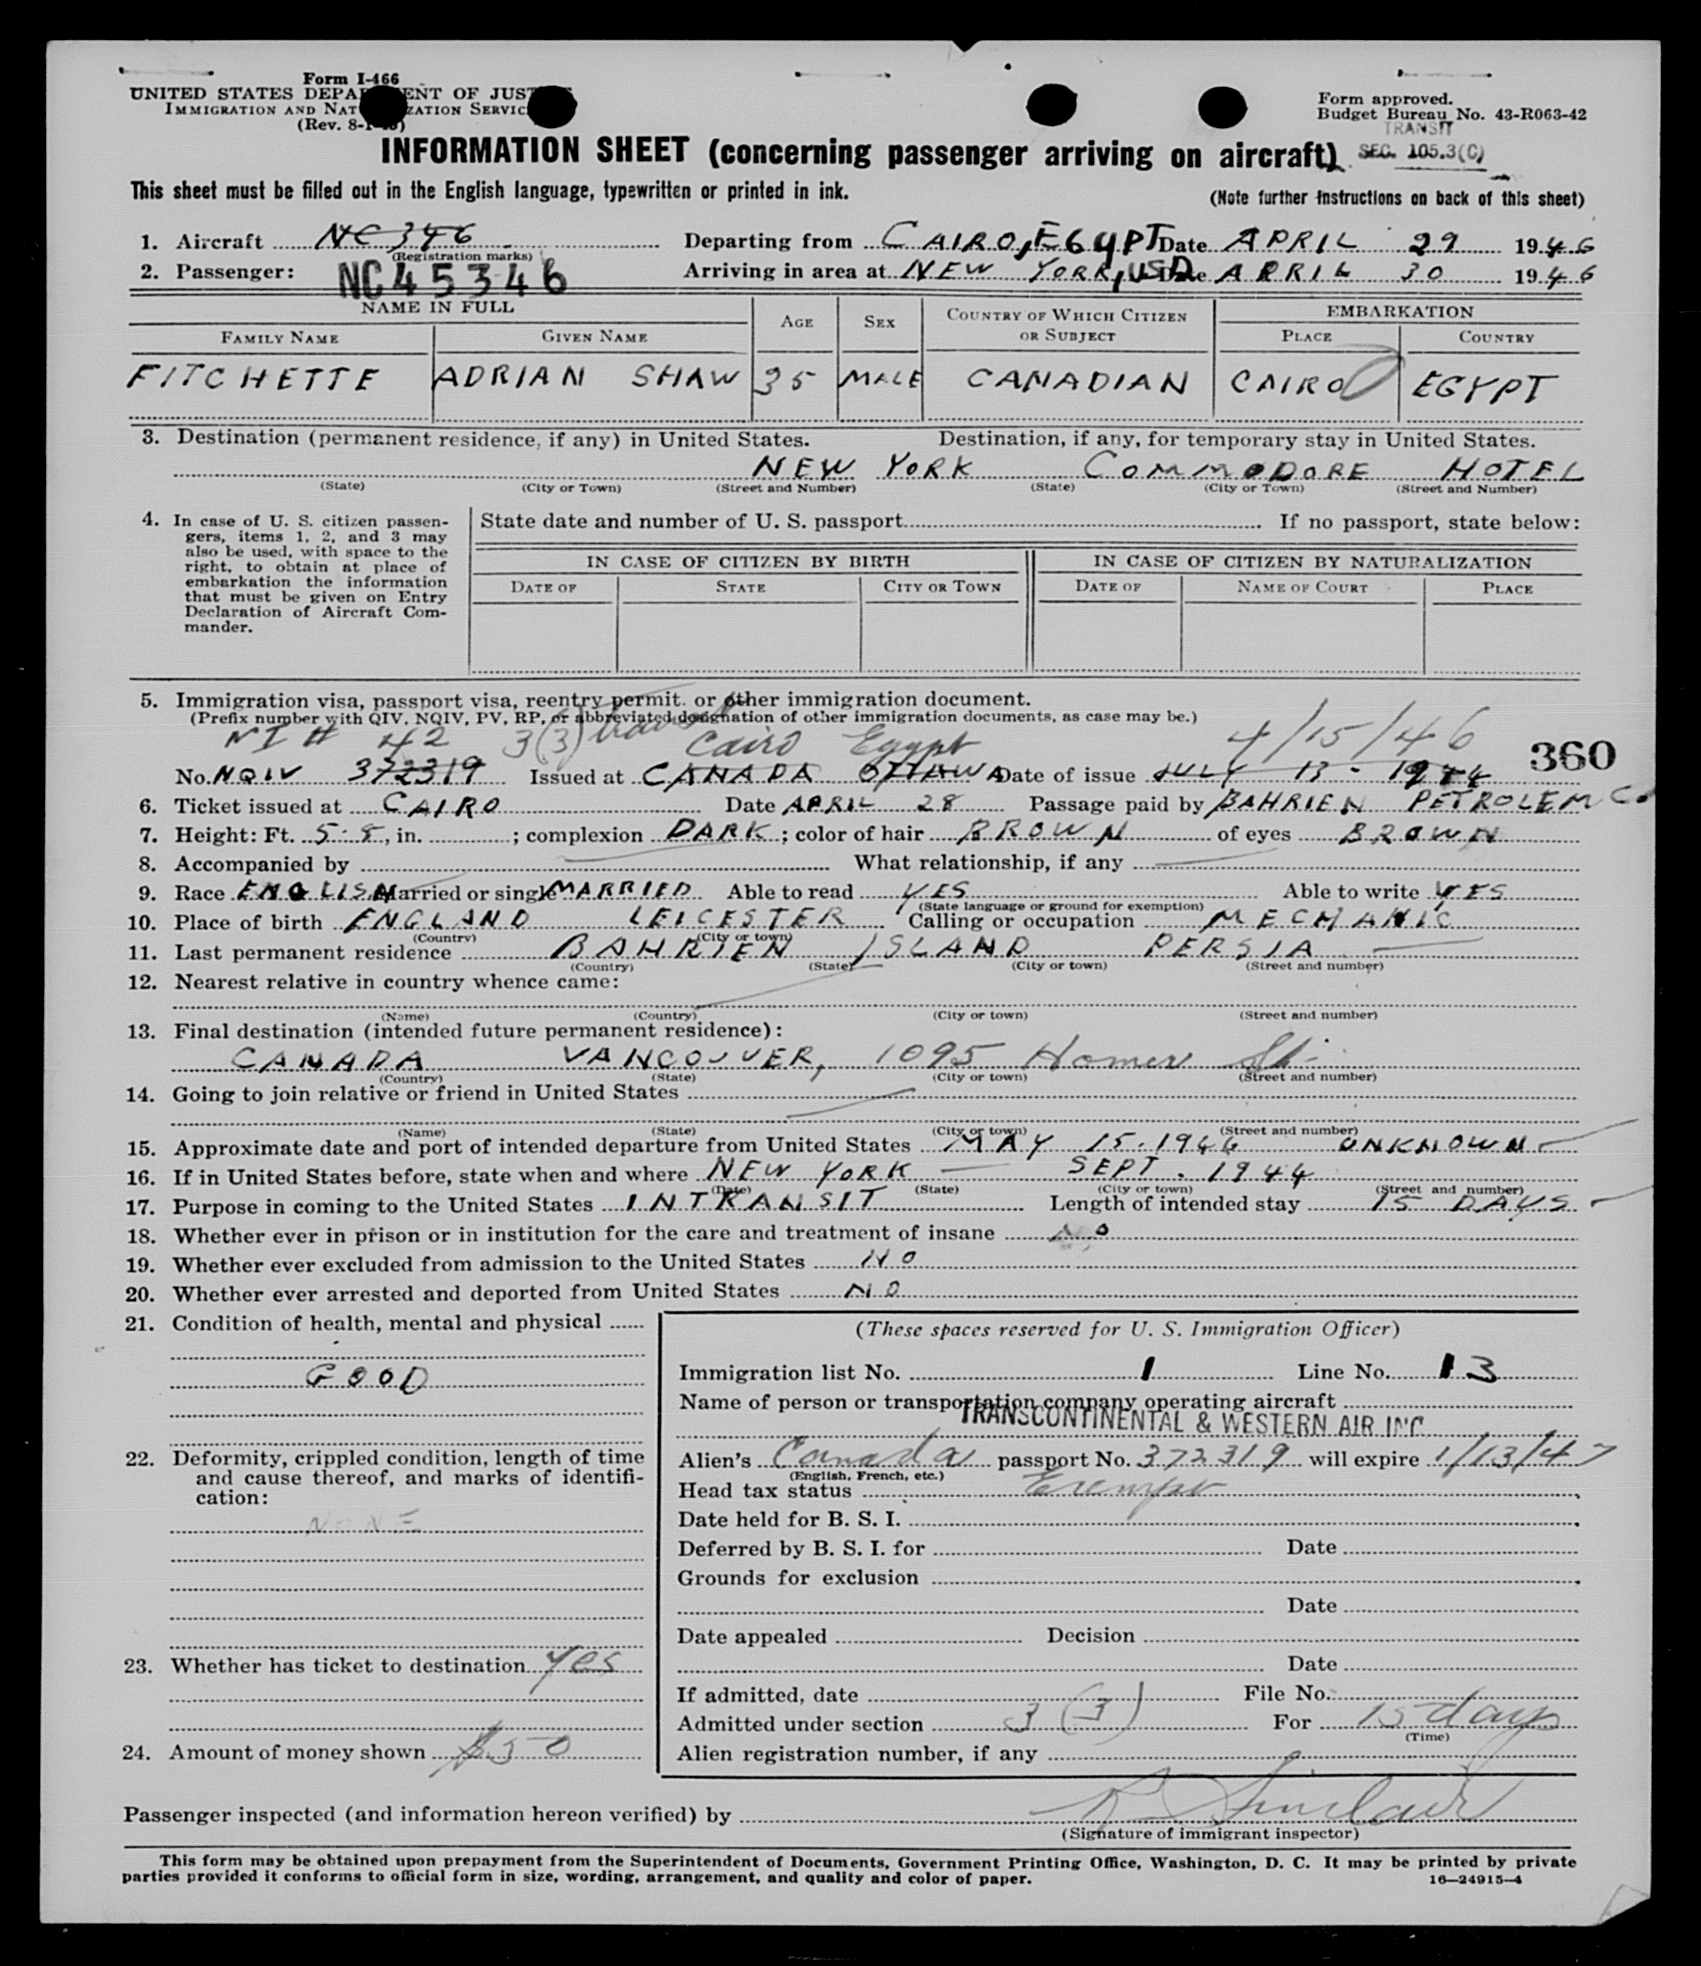 Form I-466
UNITED STATES DEPARTMENT OF JUSTICE
IMMIGRATION AND NATURALIZATION SERVICE
(Rev. 8-1-45)
Form approved.
Budget Bureau No. 43-R063-42
TRANSIT
SEC. 105.3(C)
INFORMATION SHEET (concerning passenger arriving on aircraft)
This sheet must be filled out in the English language, typewritten or printed in ink. (Note further instructions on back of this sheet)
1. Aircraft NC 346 Departing from CAIRO, EGYPT Date APRIL 29 1946
(Registration marks)
2. Passenger: NC45346 Arriving in area at NEW YORK, USA Date APRIL 30 1946
NAME IN FULL AGE SEX COUNTRY OF WHICH CITIZEN OR SUBJECT EMBARKATION
FAMILY NAME GIVEN NAME PLACE COUNTRY
FITCHETTE ADRIAN SHAW 35 MALE CANADIAN CAIRO EGYPT
3. Destination (permanent residence, if any) in United States. Destination, if any, for temporary stay in United States.
NEW YORK COMMODORE HOTEL
(State) (City or Town) (Street and Number) (State) (City or Town) (Street and Number)
4. In case of U. S. citizen passen-
gers, items 1, 2, and 3 may
also be used, with space to the
right, to obtain at place of
embarkation the information
that must be given on Entry
Declaration of Aircraft Com-
mander.
State date and number of U. S. passport If no passport, state below:
IN CASE OF CITIZEN BY BIRTH IN CASE OF CITIZEN BY NATURALIZATION
DATE OF STATE CITY OR TOWN DATE OF NAME OF COURT PLACE
5. Immigration visa, passport visa, reentry permit, or other immigration document.
(Prefix number with QIV, NQIV, PV, RP, or abbreviated designation of other immigration documents, as case may be.)
NI # 42 3(3) transit Cairo Egypt 4/15/46 360
No. NQIV 372319 Issued at CANADA OTTAWA Date of issue JULY 13 - 1944
6. Ticket issued at CAIRO Date APRIL 28 Passage paid by BAHRIEN PETROLEM Co.
7. Height: Ft. 5-8, in. ; complexion DARK; color of hair BROWN of eyes BROWN
8. Accompanied by What relationship, if any
9. Race ENGLISH Married or single MARRIED Able to read YES Able to write YES
(State language or ground for exemption)
10. Place of birth ENGLAND LEICESTER Calling or occupation MECHANIC
(Country) (City or town)
11. Last permanent residence BAHRIEN ISLAND PERSIA
(Country) (State) (City or town) (Street and number)
12. Nearest relative in country whence came:
(Name) (Country) (City or town) (Street and number)
13. Final destination (intended future permanent residence):
CANADA VANCOUVER, 1095 Homer St.
(Country) (State) (City or town) (Street and number)
14. Going to join relative or friend in United States
(Name) (State) (City or town) (Street and number)
15. Approximate date and port of intended departure from United States MAY 15. 1946 UNKNOWN
16. If in United States before, state when and where NEW YORK — SEPT. 1944
(Date) (State) (City or town) (Street and number)
17. Purpose in coming to the United States INTRANSIT Length of intended stay 15 DAYS
18. Whether ever in prison or in institution for the care and treatment of insane NO
19. Whether ever excluded from admission to the United States NO
20. Whether ever arrested and deported from United States NO
21. Condition of health, mental and physical
GOOD
22. Deformity, crippled condition, length of time
and cause thereof, and marks of identifi-
cation:
NONE
23. Whether has ticket to destination yes
24. Amount of money shown $50
(These spaces reserved for U. S. Immigration Officer)
Immigration list No. 1 Line No. 13
Name of person or transportation company operating aircraft
TRANSCONTINENTAL & WESTERN AIR INC.
Alien's Canada passport No. 372319 will expire 1/13/47
(English, French, etc.)
Head tax status Exempt
Date held for B. S. I.
Deferred by B. S. I. for Date
Grounds for exclusion
Date
Date appealed Decision
Date
If admitted, date File No.
Admitted under section 3(3) For 15 days
(Time)
Alien registration number, if any
Passenger inspected (and information hereon verified) by R Sinclair
(Signature of immigrant inspector)
This form may be obtained upon prepayment from the Superintendent of Documents, Government Printing Office, Washington, D. C. It may be printed by private
parties provided it conforms to official form in size, wording, arrangement, and quality and color of paper. 16—24915-4